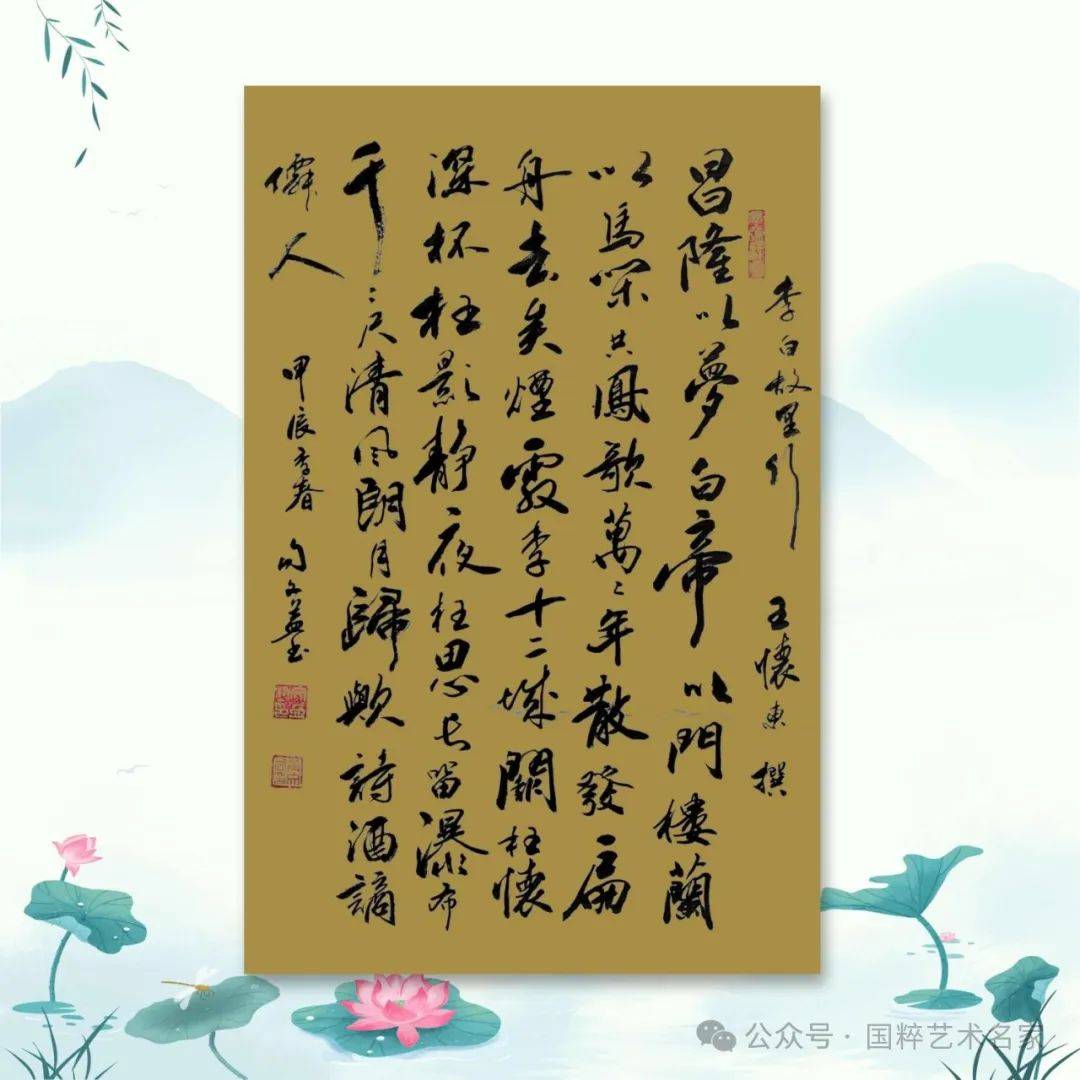 李白故里行 王懷東 撰
昌隆以夢白帝以門樓蘭
以馬共鳳歌萬々年散發扁
舟去矣煙霞李十二城闕枉懷
深杯枉影靜夜枉思長留瀑布
千々尺清風朗月歸歟詩酒謫
僊人
甲辰季春 益书
公众号·国粹艺术名家